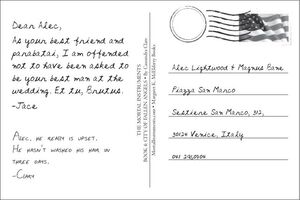 Dear Alec,
As your best friend and
parabatai, I am offended
not to have been asked to
be your best man at the
wedding. Et tu, Brutus.
-Jace
Alec, he really is upset.
He hasn't washed his hair in
three days.
-Clary
THE MORTAL INSTRUMENTS
BOOK 4: CITY OF FALLEN ANGELS • By Cassandra Clare
MortalInstruments.com • Margaret K. McElderry Books
Alec Lightwood & Magnus Bane
Piazza San Marco
Sestiere San Marco, 312,
30124 Venice, Italy
041